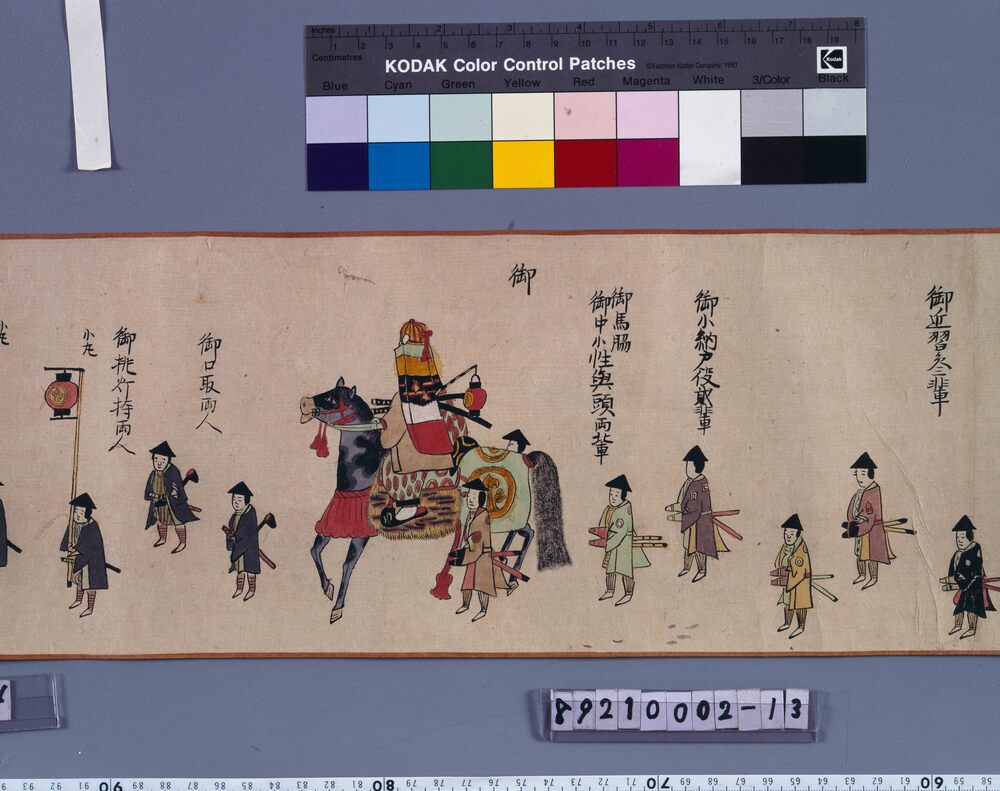 Inches 1 2 3 4 5 6 7 8
Centimetres 1 2 3 4 5 6 7 8 9 10 11 12 13 14 15 16 17 18 19
KODAK Color Control Patches
©Eastman Kodak Company, 1980
Kodak
Blue Cyan Green Yellow Red Magenta White 3/Color Black
御近習
御小納戸役
御馬脇
御中小性與頭両輩
御
御口取両人
御桃灯持両人
89210002-13
93 92 91 90 89 88 87 86 85 84 83 82 81 80 79 78 77 76 75 74 73 72 71 70 69 68 67 66 65 64 63 62 61 60 59 58